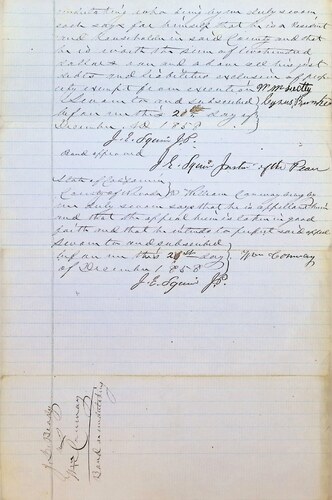 being by me duly sworn
each says for himself that he is a resident
and householder in said County and that
he is worth the sum of two hundred
dollars over and above all his just
debts and liabilities exclusive of prop
erty exempt from execution
Sworn to and subscribed Cyrus
before me this 20th day of
December AD 1858
J. E. Squire J.P.
Bond approved
J. E. Squire Justice of the Peace
State of
County of William Conway being by
me duly sworn says that he is appellant herein
and that the appeal herein is taken in good
faith and that he intends to said appeal
Sworn to and subscribed
before me this day Wm Conway
of December 1858
J. E. Squire J.P.
Wm Conway
Bond